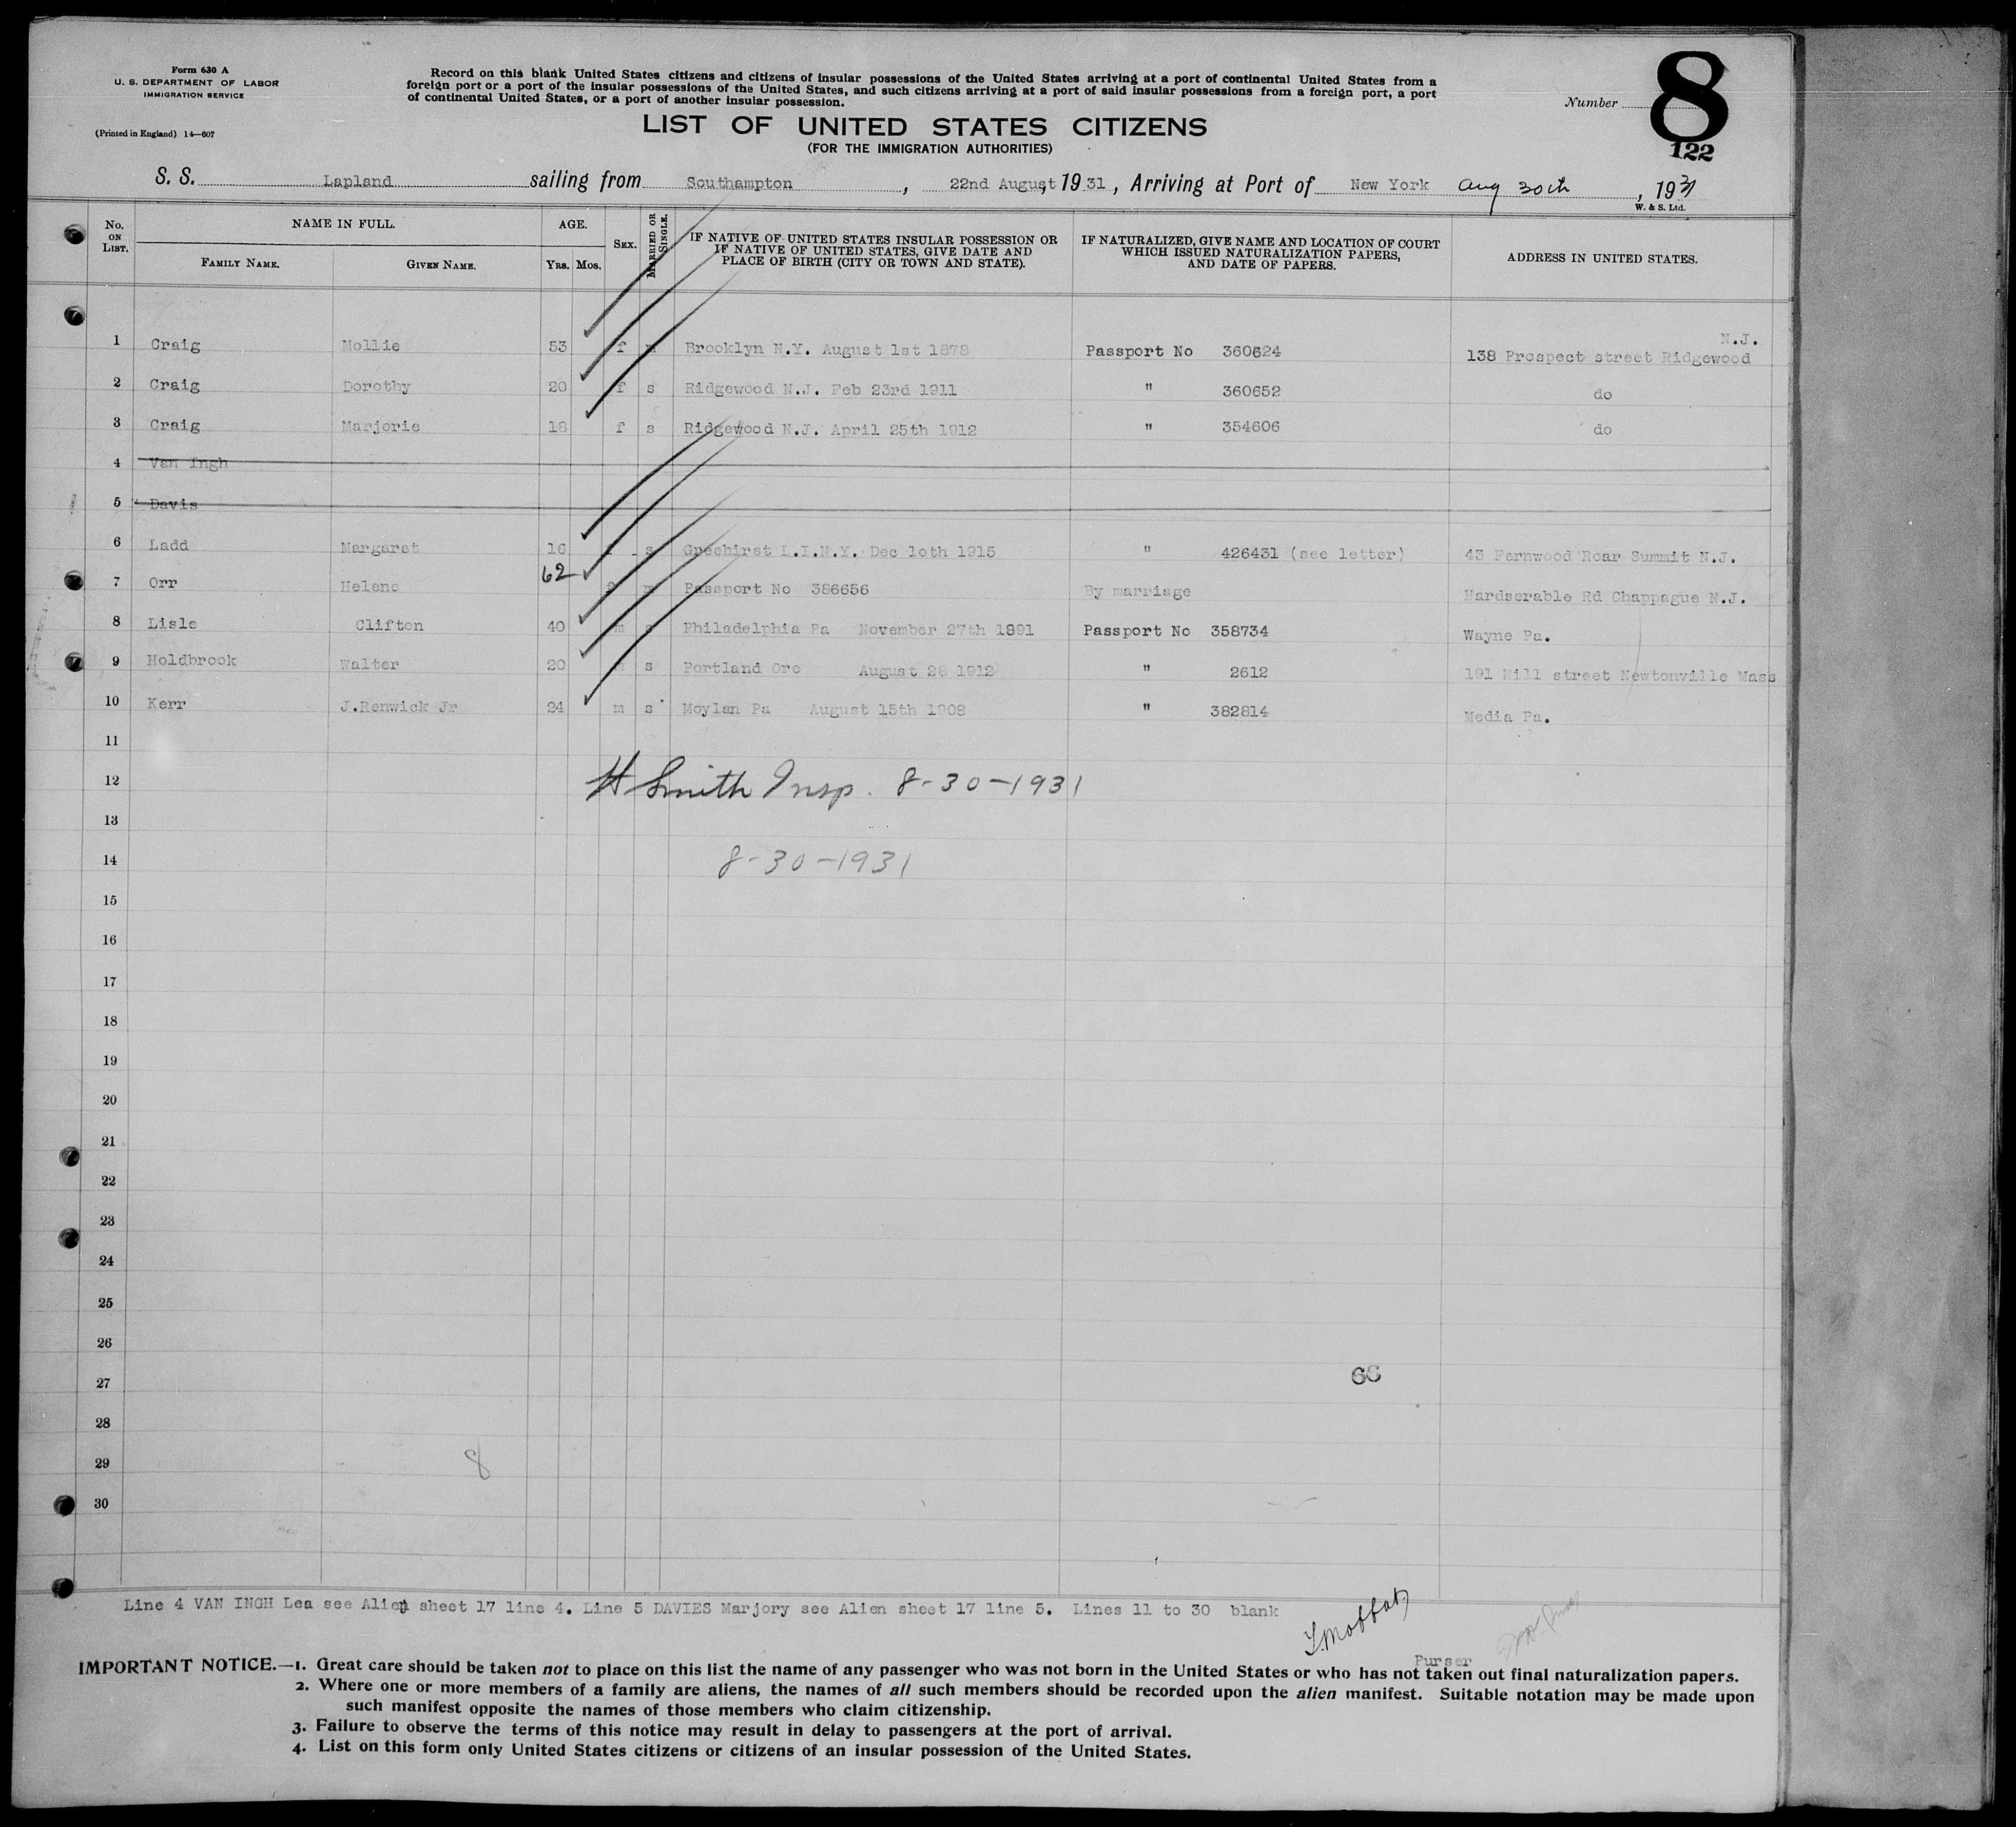 Form 630 A
U. S. DEPARTMENT OF LABOR
IMMIGRATION SERVICE
(Printed in England) 14—607
Record on this blank United States citizens and citizens of insular possessions of the United States arriving at a port of continental United States from a
foreign port or a port of the insular possessions of the United States, and such citizens arriving at a port of said insular possessions from a foreign port, a port
of continental United States, or a port of another insular possession.
Number 8
122
LIST OF UNITED STATES CITIZENS
(FOR THE IMMIGRATION AUTHORITIES)
S. S. Lapland sailing from Southampton , 22nd August, 19 31 , Arriving at Port of New York Aug 30th , 1931
W. & S. Ltd.
No. ON LIST. NAME IN FULL. FAMILY NAME. GIVEN NAME. AGE. YRS. MOS. SEX. MARRIED OR SINGLE. IF NATIVE OF UNITED STATES INSULAR POSSESSION OR IF NATIVE OF UNITED STATES, GIVE DATE AND PLACE OF BIRTH (CITY OR TOWN AND STATE). IF NATURALIZED, GIVE NAME AND LOCATION OF COURT WHICH ISSUED NATURALIZATION PAPERS, AND DATE OF PAPERS. ADDRESS IN UNITED STATES.
1 Craig Mollie 53 f m Brooklyn N.Y. August 1st 1878 Passport No 360624 138 Prospect street Ridgewood N.J.
2 Craig Dorothy 20 f s Ridgewood N.J. Feb 23rd 1911 " 360652 do
3 Craig Marjorie 18 f s Ridgewood N.J. April 25th 1912 " 354606 do
4 Van Ingh
5 Davis
6 Ladd Margaret 16 f s L.I.N.Y. Dec 10th 1915 " 426431 (see letter) 43 Fernwood Roar Summit N.J.
7 Orr Helene 62 f m Passport No 386656 By marriage Hardserable Rd Chappague N.J.
8 Lisle Clifton 40 m s Philadelphia Pa November 27th 1891 Passport No 358734 Wayne Pa.
9 Holdbrook Walter 20 m s Portland Ore August 28 1912 " 2612 191 Mill street Newtonville Mass
10 Kerr J.Renwick Jr 24 m s Moylan Pa August 15th 1908 " 382814 Media Pa.
11
12 H Smith Insp. 8-30-1931
13
14 8-30-1931
15
16
17
18
19
20
21
22
23
24
25
26
27 66
28
29 8
30
Line 4 VAN INGH Lea see Alien sheet 17 line 4. Line 5 DAVIES Marjory see Alien sheet 17 line 5. Lines 11 to 30 blank
Purser
IMPORTANT NOTICE.—1. Great care should be taken not to place on this list the name of any passenger who was not born in the United States or who has not taken out final naturalization papers.
2. Where one or more members of a family are aliens, the names of all such members should be recorded upon the alien manifest. Suitable notation may be made upon
such manifest opposite the names of those members who claim citizenship.
3. Failure to observe the terms of this notice may result in delay to passengers at the port of arrival.
4. List on this form only United States citizens or citizens of an insular possession of the United States.